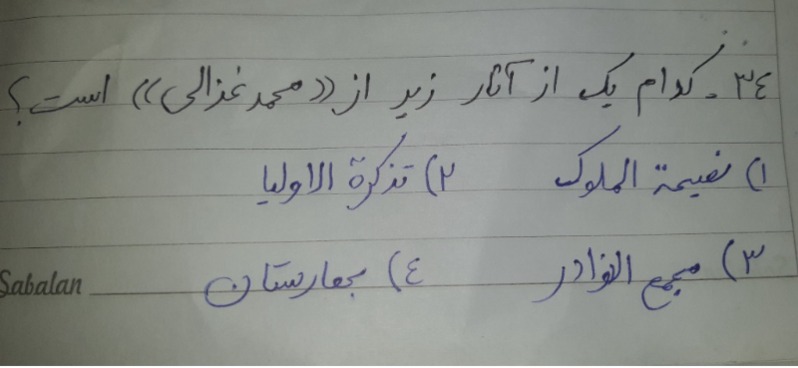 ۳٤. کدام یک از آثار زیر از «محمد غزالی» است؟
۱) نصیحة الملوک ۲) تذکرة الاولیا
۳) مجمع النوادر ٤) بهارستان
Sabalan